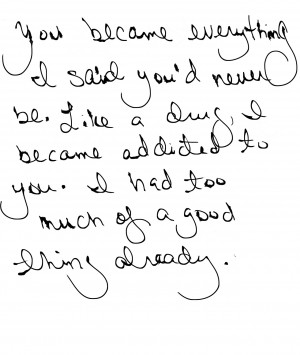 You became everything
I said you'd never
be. Like a drug, I
became addicted to
you. I had too
much of a good
thing already.